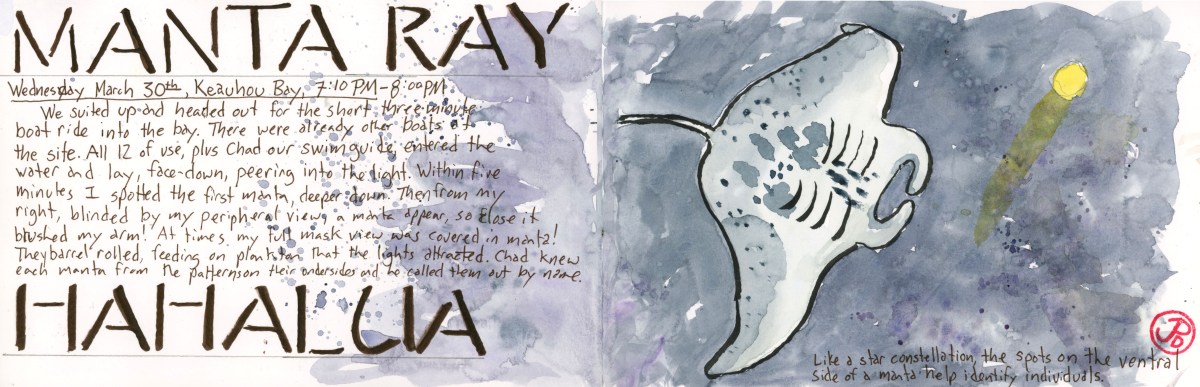 MANTA RAY
Wednesday March 30th, Keauhou Bay, 7:10 PM - 8:00 PM
We suited up and headed out for the short three-minute
boat ride into the bay. There were already other boats at
the site. All 12 of use, plus Chad our swim guide, entered the
water and lay, face-down, peering into the light. Within five
minutes I spotted the first manta, deeper down. Then from my
right, blinded by my peripheral view, a manta appear, so close it
brushed my arm! At times my full mask view was covered in manta!
They barrel rolled, feeding on plankton that the lights attracted. Chad knew
each manta from the patterns on their undersides and he called them out by name.
HAHALUA
Like a star constellation, the spots on the ventral
side of a manta help identify individuals.